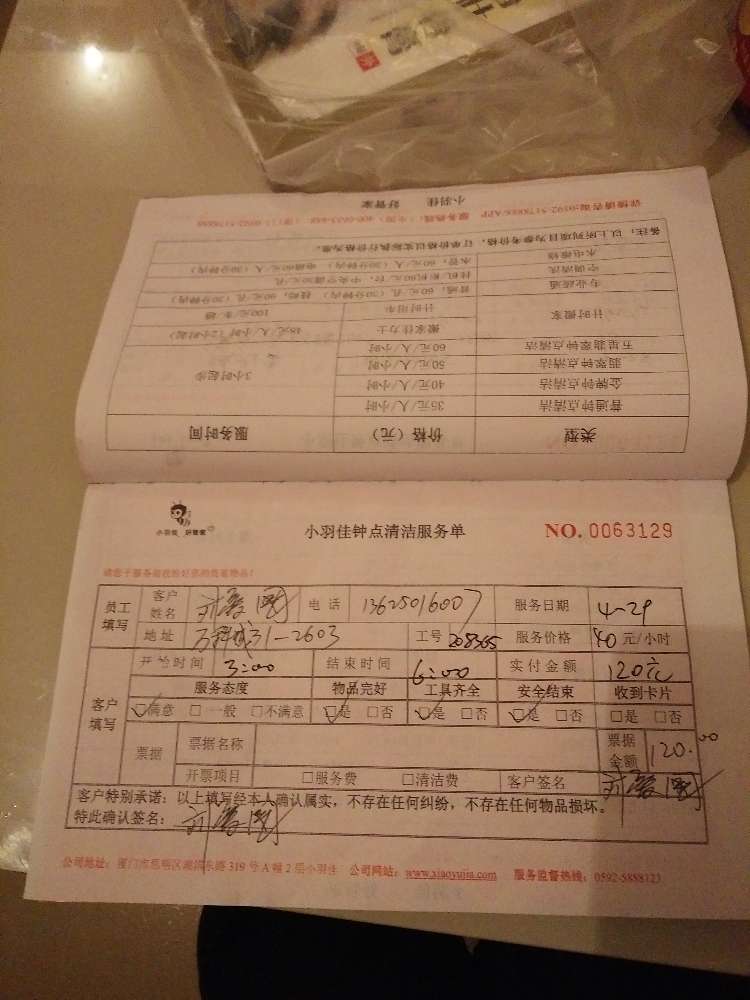 小羽佳 好管家
详情请咨询:0592-5178888/APP
备注：以上所列项目为参考价格，订单价格以实际执行价格为准。
水电维修
空调清洗
专业疏通
计时搬家 计时用车 100元/车·趟
搬家佳力士 48元/人/小时（2小时起）
五星翡翠钟点清洁 60元/人/小时
翡翠钟点清洁 50元/人/小时
金牌钟点清洁 40元/人/小时
普通钟点清洁 35元/人/小时
3小时起步
类型 价格（元） 服务时间
小羽佳 好管家
小羽佳钟点清洁服务单
NO. 0063129
请您于服务前收拾好您的贵重物品！
员工填写 客户姓名 电话 13625016007 服务日期 4-29
地址 万科城31-2603 工号 208365 服务价格 40元/小时
客户填写 开始时间 3:00 结束时间 6:00 实付金额 120元
服务态度 物品完好 工具齐全 安全结束 收到卡片
☑满意 □一般 □不满意 ☑是 □否 ☑是 □否 ☑是 □否 □是 □否
票据 票据名称 票据金额 120.00
开票项目 □服务费 □清洁费 客户签名
客户特别承诺：以上填写经本人确认属实，不存在任何纠纷，不存在任何物品损坏。
特此确认签名：
公司地址：厦门市思明区湖滨东路319号A幢2层小羽佳 公司网站：www.xiaoyujia.com 服务监督热线：0592-5888123